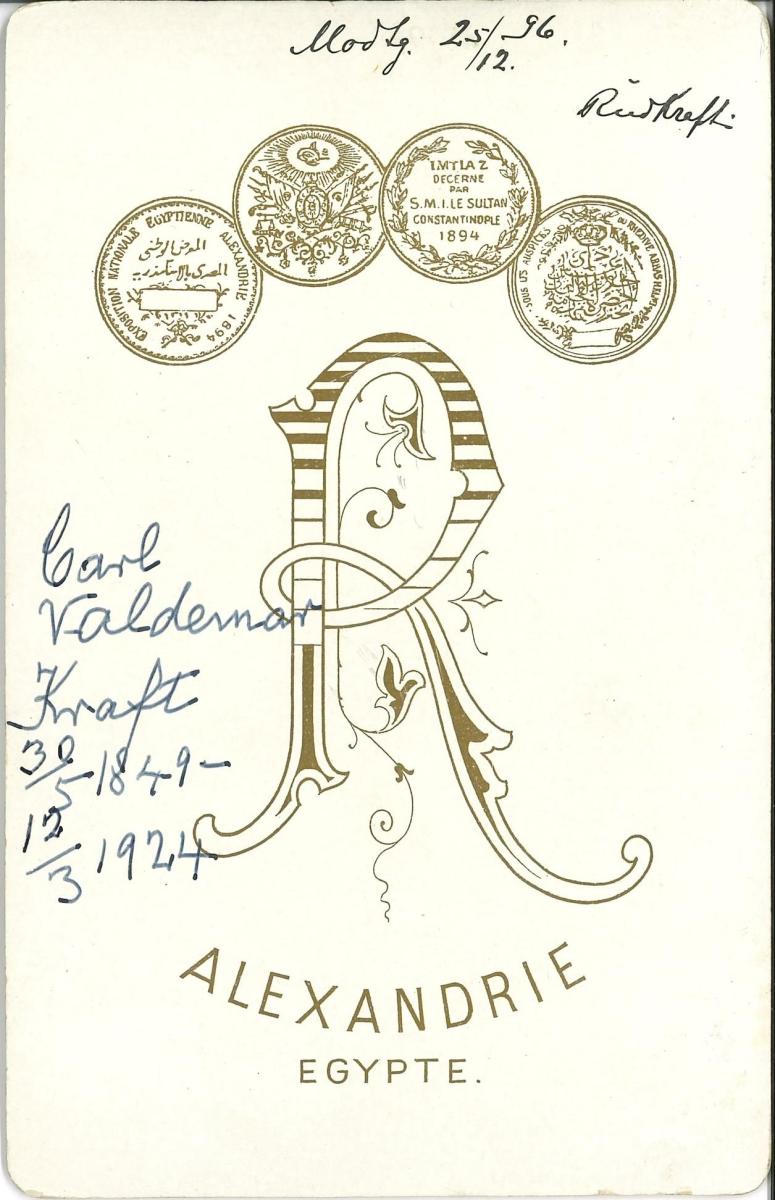 Modtg. 25/12. 96.
RudKraft.
EXPOSITION NATIONALE EGYPTIENNE ALEXANDRIE 1894
المعرض الوطنى
المصرى بالاسكندريه
IMTIAZ
DECERNE
PAR
S.M.I. LE SULTAN
CONSTANTINOPLE
1894
SOUS LES AUSPICES
DU KHEDIVE ABBAS HILMI
R
Carl
Valdemar
Kraft
30/5 1849–
12/3 1924
ALEXANDRIE
EGYPTE.